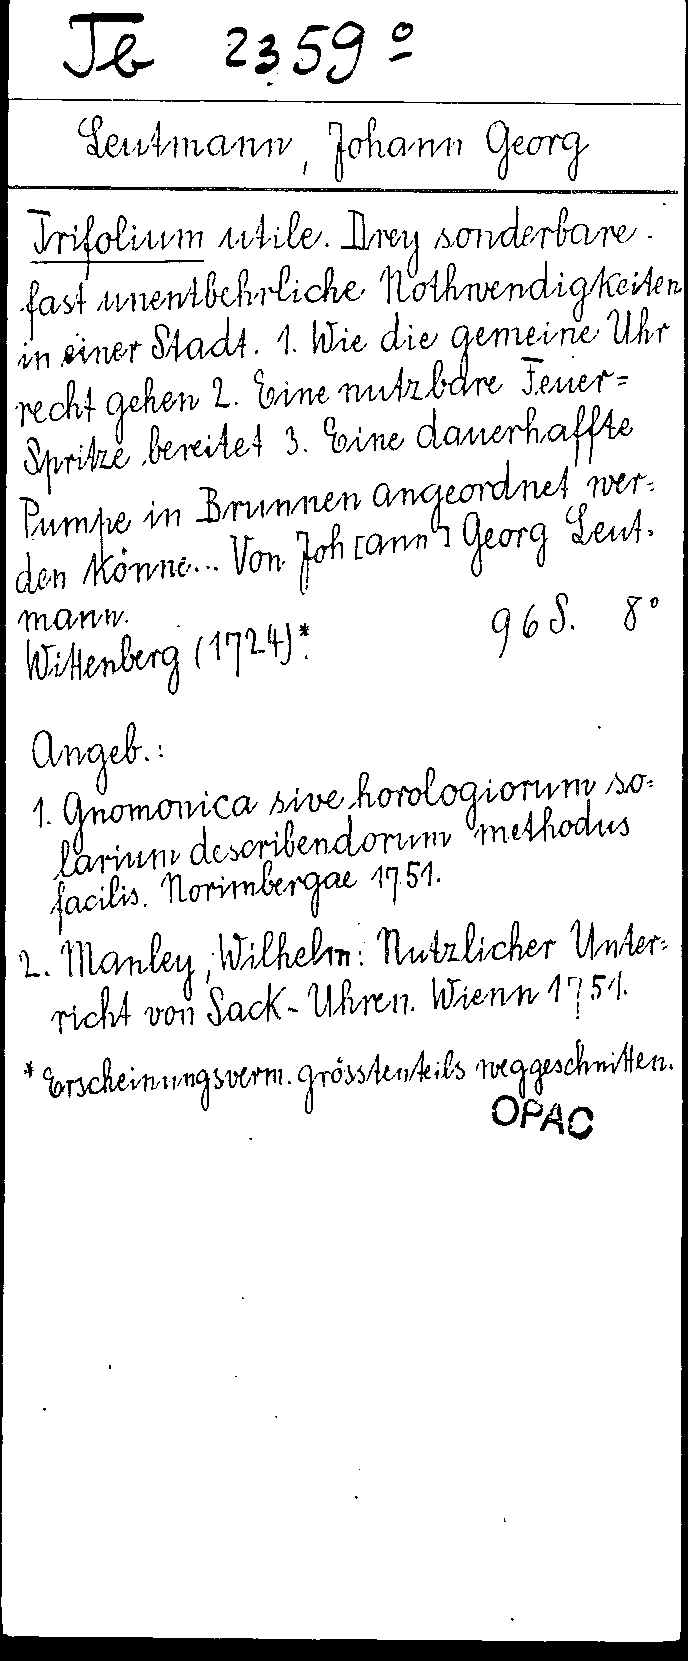 Tb 2359º
Leutmann, Johann Georg
Trifolium utile. Drey sonderbare
fast unentbehrliche Nothwendigkeiten
in einer Stadt. 1. Wie die gemeine Uhr
recht gehen 2. Eine nutzbare Feuer=
Spritze bereitet 3. Eine dauerhaffte
Pumpe in Brunnen angeordnet wer=
den könne... Von Joh[ann] Georg Leut=
mann.
Wittenberg (1724)*. 96 S. 8°
Angeb.:
1. Gnomonica sive horologiorum so=
larium describendorum methodus
facilis. Norimbergae 1751.
2. Manley, Wilhelm: Nutzlicher Unter=
richt von Sack-Uhren. Wienn 1751.
* Erscheinungsverm. grösstenteils weggeschnitten.
OPAC